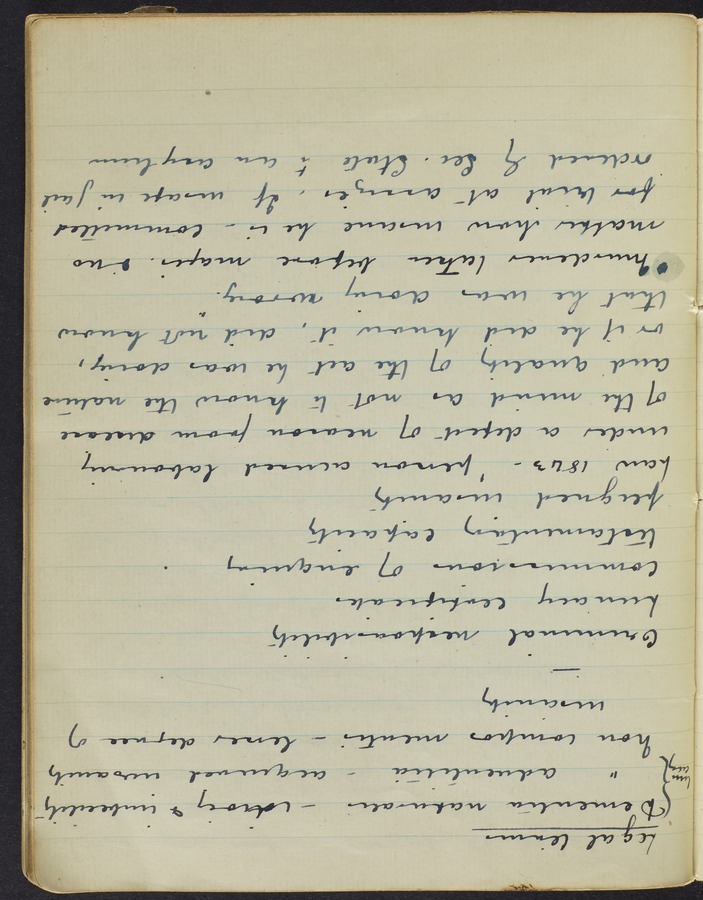 Legal terms
Dementia naturalis - idiocy & imbecility
" adventitia - acquired insanity
Non compos mentis - lesser degree of
insanity
Criminal responsibility
Lunacy certificates
Commissions of enquiry
Testamentary capacity
feigned insanity
Law 1843 - "person accused labouring
under a defect of reason from disease
of the mind as not to know the nature
and quality of the act he was doing,
or if he did know it, did not know
that he was doing wrong."
Murderer taken before magis. & no
matter how insane he is - committed
for trial at assizes. If insane in jail
ordered by Sec. State to an asylum